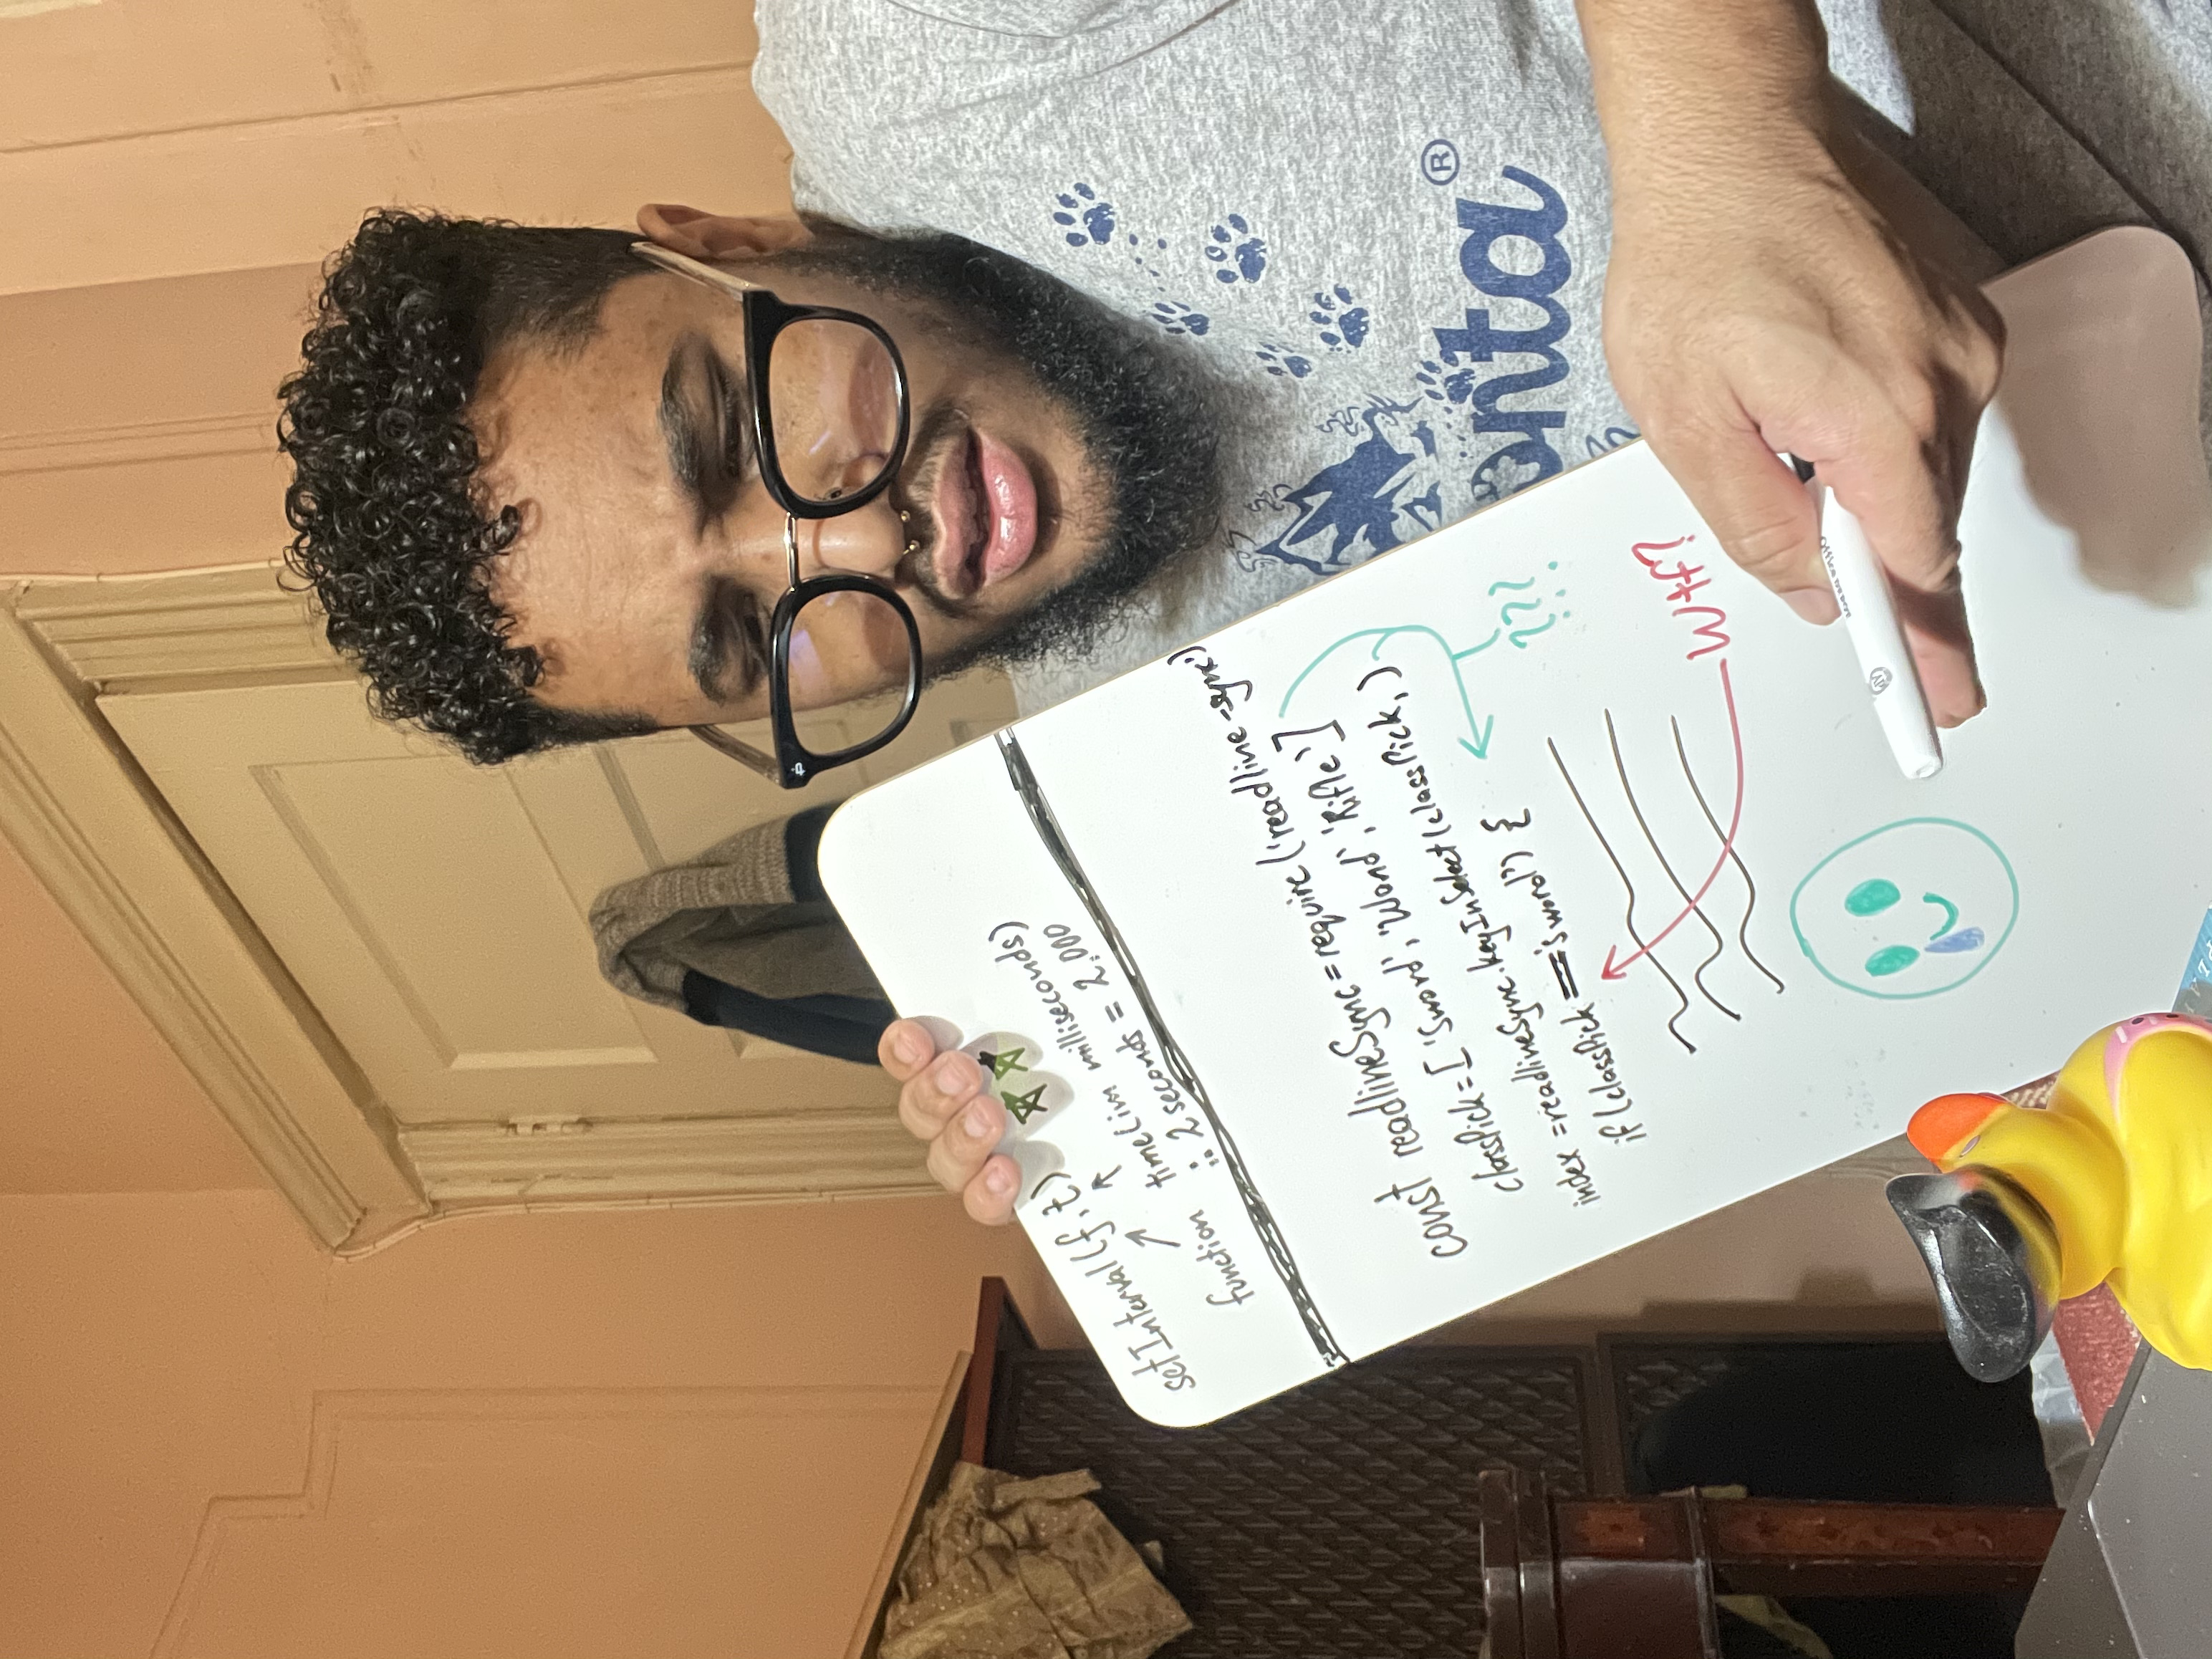 setInterval(f,t)
function time(im milliseconds)
∴ 2 seconds = 2.000
const readlineSync=require('readline-sync')
classPick=['Sword','Wand','Rifle']
index =readlineSync.keyInSelect(classPick, )
if (classPick =='sword') {
???
Wtf?
onta®
Office DEPOT